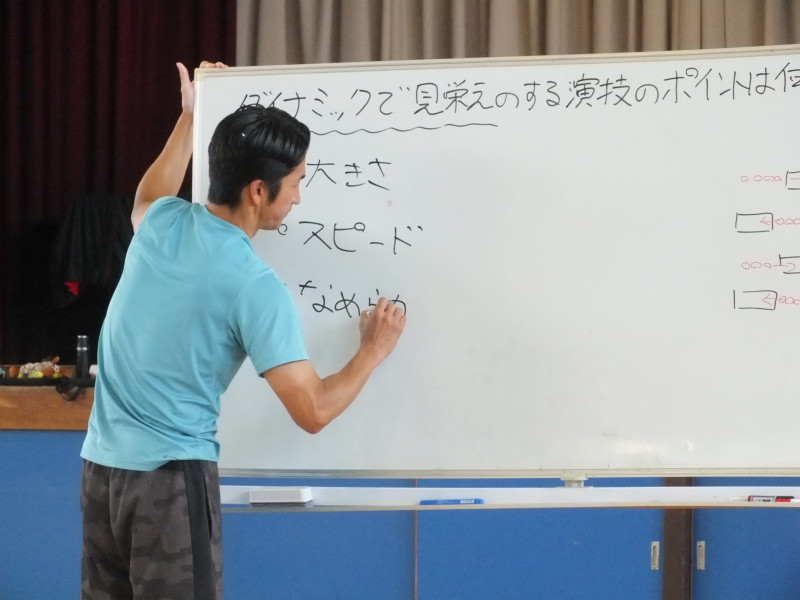 ダイナミックで見栄えのする演技のポイントは何
大きさ
スピード
なめらか